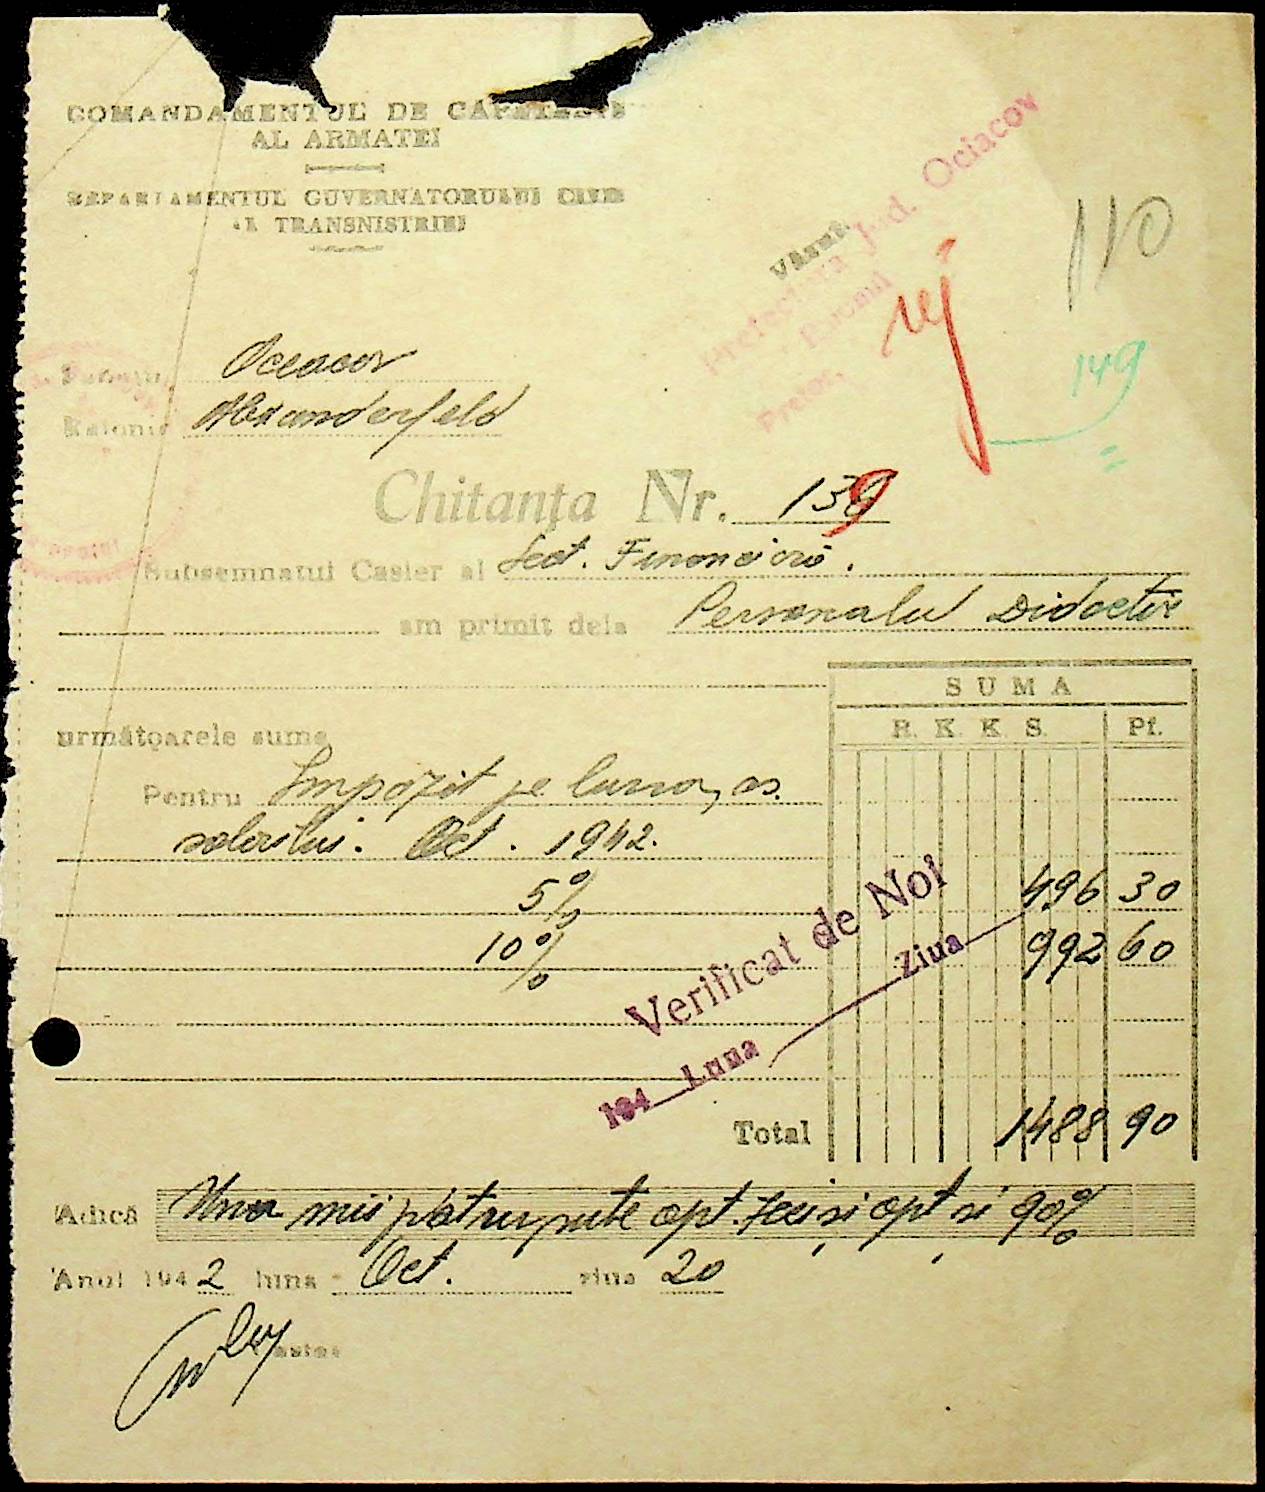 COMANDAMENTUL DE CĂPETENIE
AL ARMATEI
DEPARTAMENTUL GUVERNATORULUI CIVIL
AL TRANSNISTRIEI
Prefectura Jud. Ociacov
Văzut,
Pretor,
110
149
Oceacov
Raionul Alexanderfeld
Chitanța Nr. 139
Subsemnatul Casier al Sect. Financiară.
am primit dela Personalul Didactic
SUMA
următoarele sume
R. K. K. S. Pf.
Pentru Impozit pe luna, as.
salariului. Oct. 1942.
5% 496 30
10% 992 60
Verificat de Noi
194 Luna Ziua
Total 1488 90
Adică Una mii patru sute opt zeci și opt și 90%
Anul 1942 luna Oct. ziua 20